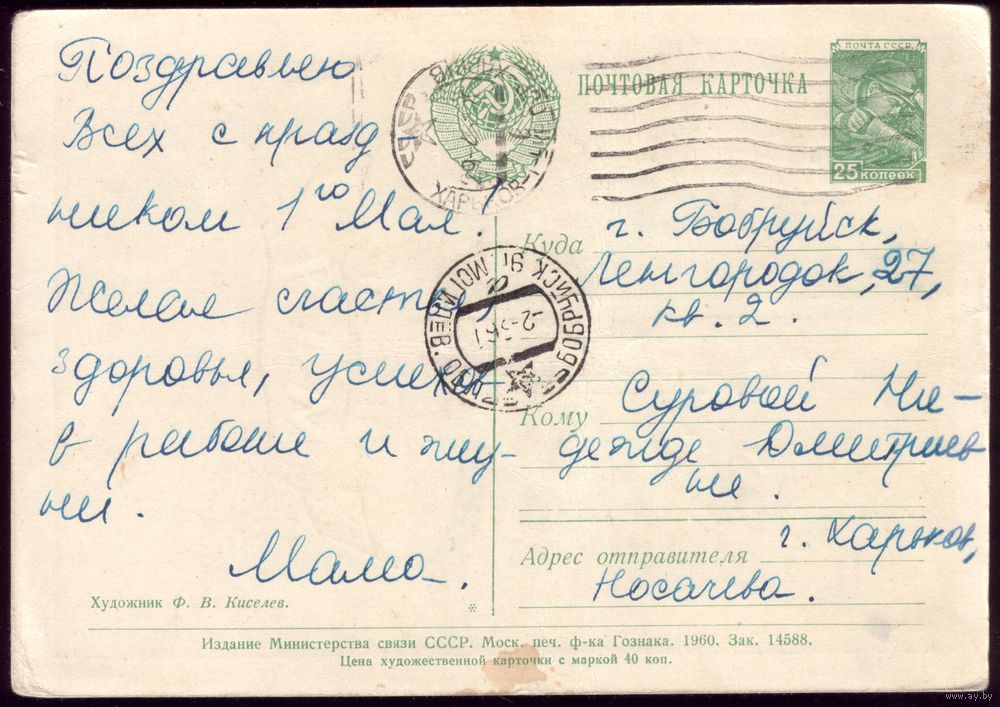 Поздравляю
Всех с празд
ником 1го Мая.
Желаю счастья,
здоровья, успехов
в работе и жиз-
ни.
Мама.
Художник Ф. В. Киселев.
ПОЧТОВАЯ КАРТОЧКА
ПОЧТА СССР
25 КОПЕЕК
Куда г. Бобруйск,
Ленгородок, 27,
кв. 2.
Кому Суровой На-
дежде Дмитриев
не.
Адрес отправителя г. Харьков,
Носачева.
*
Издание Министерства связи СССР. Моск. печ. ф-ка Гознака. 1960. Зак. 14588.
Цена художественной карточки с маркой 40 коп.
БОБРУЙСК 9 Г. МОГИЛЕВ.
ХАРЬКОВ
www.ay.by